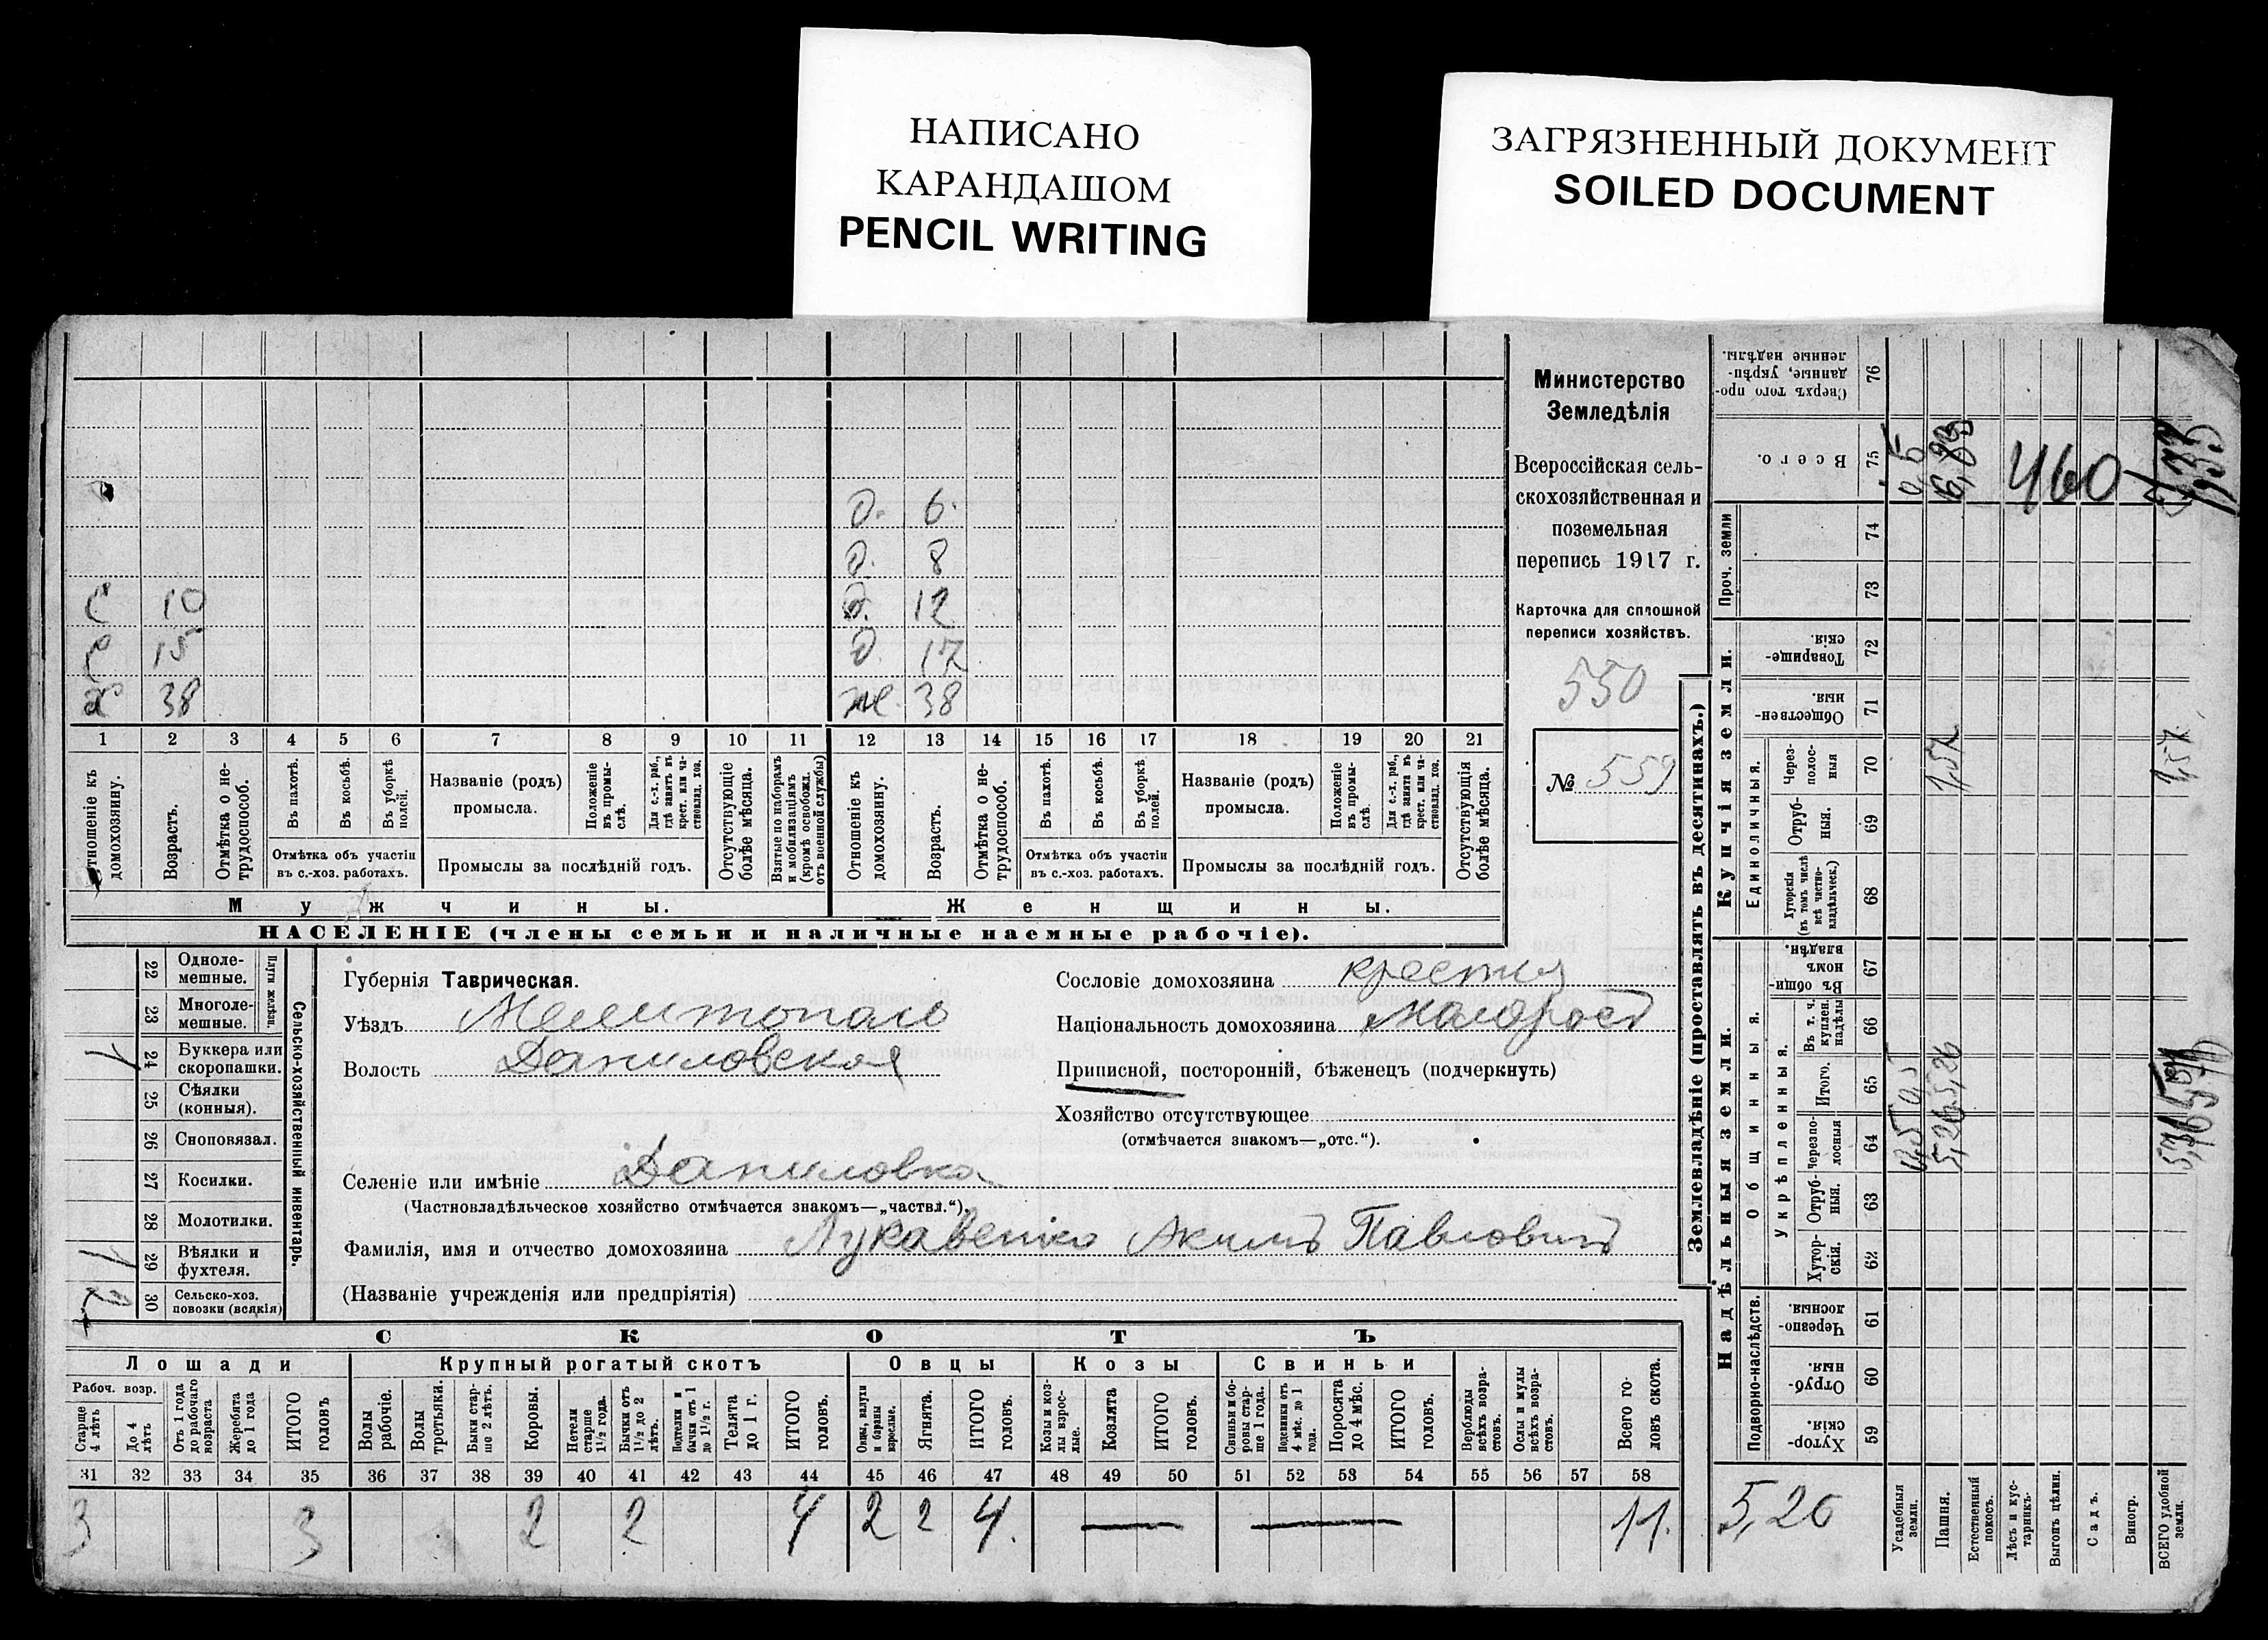 НАПИСАНО
КАРАНДАШОМ
PENCIL WRITING
ЗАГРЯЗНЕННЫЙ ДОКУМЕНТ
SOILED DOCUMENT
д. 6.
д. 8
с 10 д. 12
с 15 д. 17
х 38 ж. 38
1 2 3 4 5 6 7 8 9 10 11 12 13 14 15 16 17 18 19 20 21
Отношеніе къ домохозяину.
Возрастъ.
Отмѣтка о не-трудоспособ.
Въ пахотѣ.
Въ косьбѣ.
Въ уборкѣ полей.
Отмѣтка объ участіи въ с.-хоз. работахъ.
Названіе (родъ) промысла.
Положеніе въ промы-слѣ.
Для с.-х. раб., гдѣ занятъ въ крест. или ча-стновлад. хоз.
Промыслы за послѣдній годъ.
Отсутствующіе болѣе мѣсяца.
Взятые по наборамъ и мобилизаціямъ (кромѣ освобожд. отъ военной службы)
Отношеніе къ домохозяину.
Возрастъ.
Отмѣтка о не-трудоспособ.
Въ пахотѣ.
Въ косьбѣ.
Въ уборкѣ полей.
Отмѣтка объ участіи въ с.-хоз. работахъ.
Названіе (родъ) промысла.
Положеніе въ промы-слѣ.
Для с.-х. раб., гдѣ занята въ крест. или ча-стновлад. хоз.
Промыслы за послѣдній годъ.
Отсутствующія болѣе мѣсяца.
Мужчины. Женщины.
НАСЕЛЕНІЕ (члены семьи и наличные наемные рабочіе).
Министерство
Земледѣлія
Всероссійская сель-
скохозяйственная и
поземельная
перепись 1917 г.
Карточка для сплошной
переписи хозяйствъ.
550
№ 559
Сельско-хозяйственный инвентарь.
Плуги желѣзн.
22 Одноле-мешные.
23 Многоле-мешные.
1 24 Буккера или скоропашки.
25 Сѣялки (конныя).
26 Сноповязал.
27 Косилки.
28 Молотилки.
1 29 Вѣялки и фухтеля.
30 Сельско-хоз. повозки (всякія)
Губернія Таврическая.
Уѣздъ Мелитополь
Волость Даниловская
Селеніе или имѣніе Даниловка
(Частновладѣльческое хозяйство отмѣчается знакомъ—„частвл.“).
Фамилія, имя и отчество домохозяина Лукавенко Акимъ Павловичъ
(Названіе учрежденія или предпріятія)
Сословіе домохозяина
Національность домохозяина Малоросъ
Приписной, посторонній, бѣженецъ (подчеркнуть)
Хозяйство отсутствующее
(отмѣчается знакомъ—„отс.“).
СКОТЪ
Лошади Крупный рогатый скотъ Овцы Козы Свиньи
Рабоч. возр.
Старше 4 лѣтъ
До 4 лѣтъ
Отъ 1 года до рабочаго возраста
Жеребята до 1 года
ИТОГО головъ
Волы рабочіе.
Волы третьяки.
Быки стар-ше 2 лѣтъ.
Коровы.
Нетели старше 1½ года.
Бычки отъ 1½ до 2 лѣтъ.
Подтелки и бычки отъ 1 до 1½ г.
Телята до 1 г.
ИТОГО головъ.
Овцы, валухи и бараны взрослые.
Ягнята.
ИТОГО головъ.
Козы и коз-лы взрос-лые.
Козлята
ИТОГО головъ.
Свиньи и бо-ровы стар-ше 1 года.
Подсвинки отъ 4 мѣс. до 1 года.
Поросята до 4 мѣс.
ИТОГО головъ.
Верблюды всѣхъ возра-стовъ.
Ослы и мулы всѣхъ возра-стовъ.
Всего го-ловъ скота.
31 32 33 34 35 36 37 38 39 40 41 42 43 44 45 46 47 48 49 50 51 52 53 54 55 56 57 58
3 3 2 2 4 2 2 4. 11.
Землевладѣніе (проставлять въ десятинахъ.)
Надѣльныя земли. Купчія земли.
Проч. земли
Сверхъ того про-данные, укрѣп-ленные надѣлы. 76
Всего. 75
74
73
Товарище-скія. 72
Обществен-ныя. 71
Единоличныя.
Через-полос-ныя 70
Отруб-ныя. 69
Хуторскія (въ томъ числѣ всѣ частно-владѣльческ.) 68
Общинныя.
Въ общи-номъ владѣн. 67
Укрѣпленныя.
Въ т. ч. куплен. надѣлы 66
Итого. 65
Черезпо-лосныя 64
Отруб-ныя. 63
Хутор-скія. 62
Подворно-наслѣдств.
Черезпо-лосныя 61
Отруб-ныя. 60
Хутор-скія. 59
0,5
460
1,57 1,57
0,5 0,5
5,26 5,26
5,26
Усадебныя земли.
Пашня.
Естественный покосъ.
Лѣсъ и кус-тарникъ.
Выгонъ цѣлин.
Садъ.
Виногр.
ВСЕГО удобной земли.